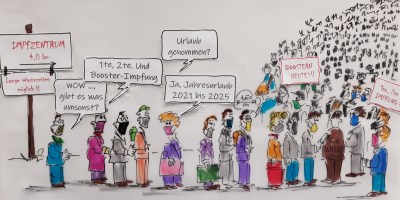 IMPFZENTRUM
4,0 km
Lange Wartezeiten
möglich!!
WOW ...,
gibt es was
umsonst?
1te, 2te. Und
Booster-Impfung
Urlaub
genommen?
Ja, Jahresurlaub
2021 bis 2025
BOOSTERN
HEUTE!!!
IMPFUNG